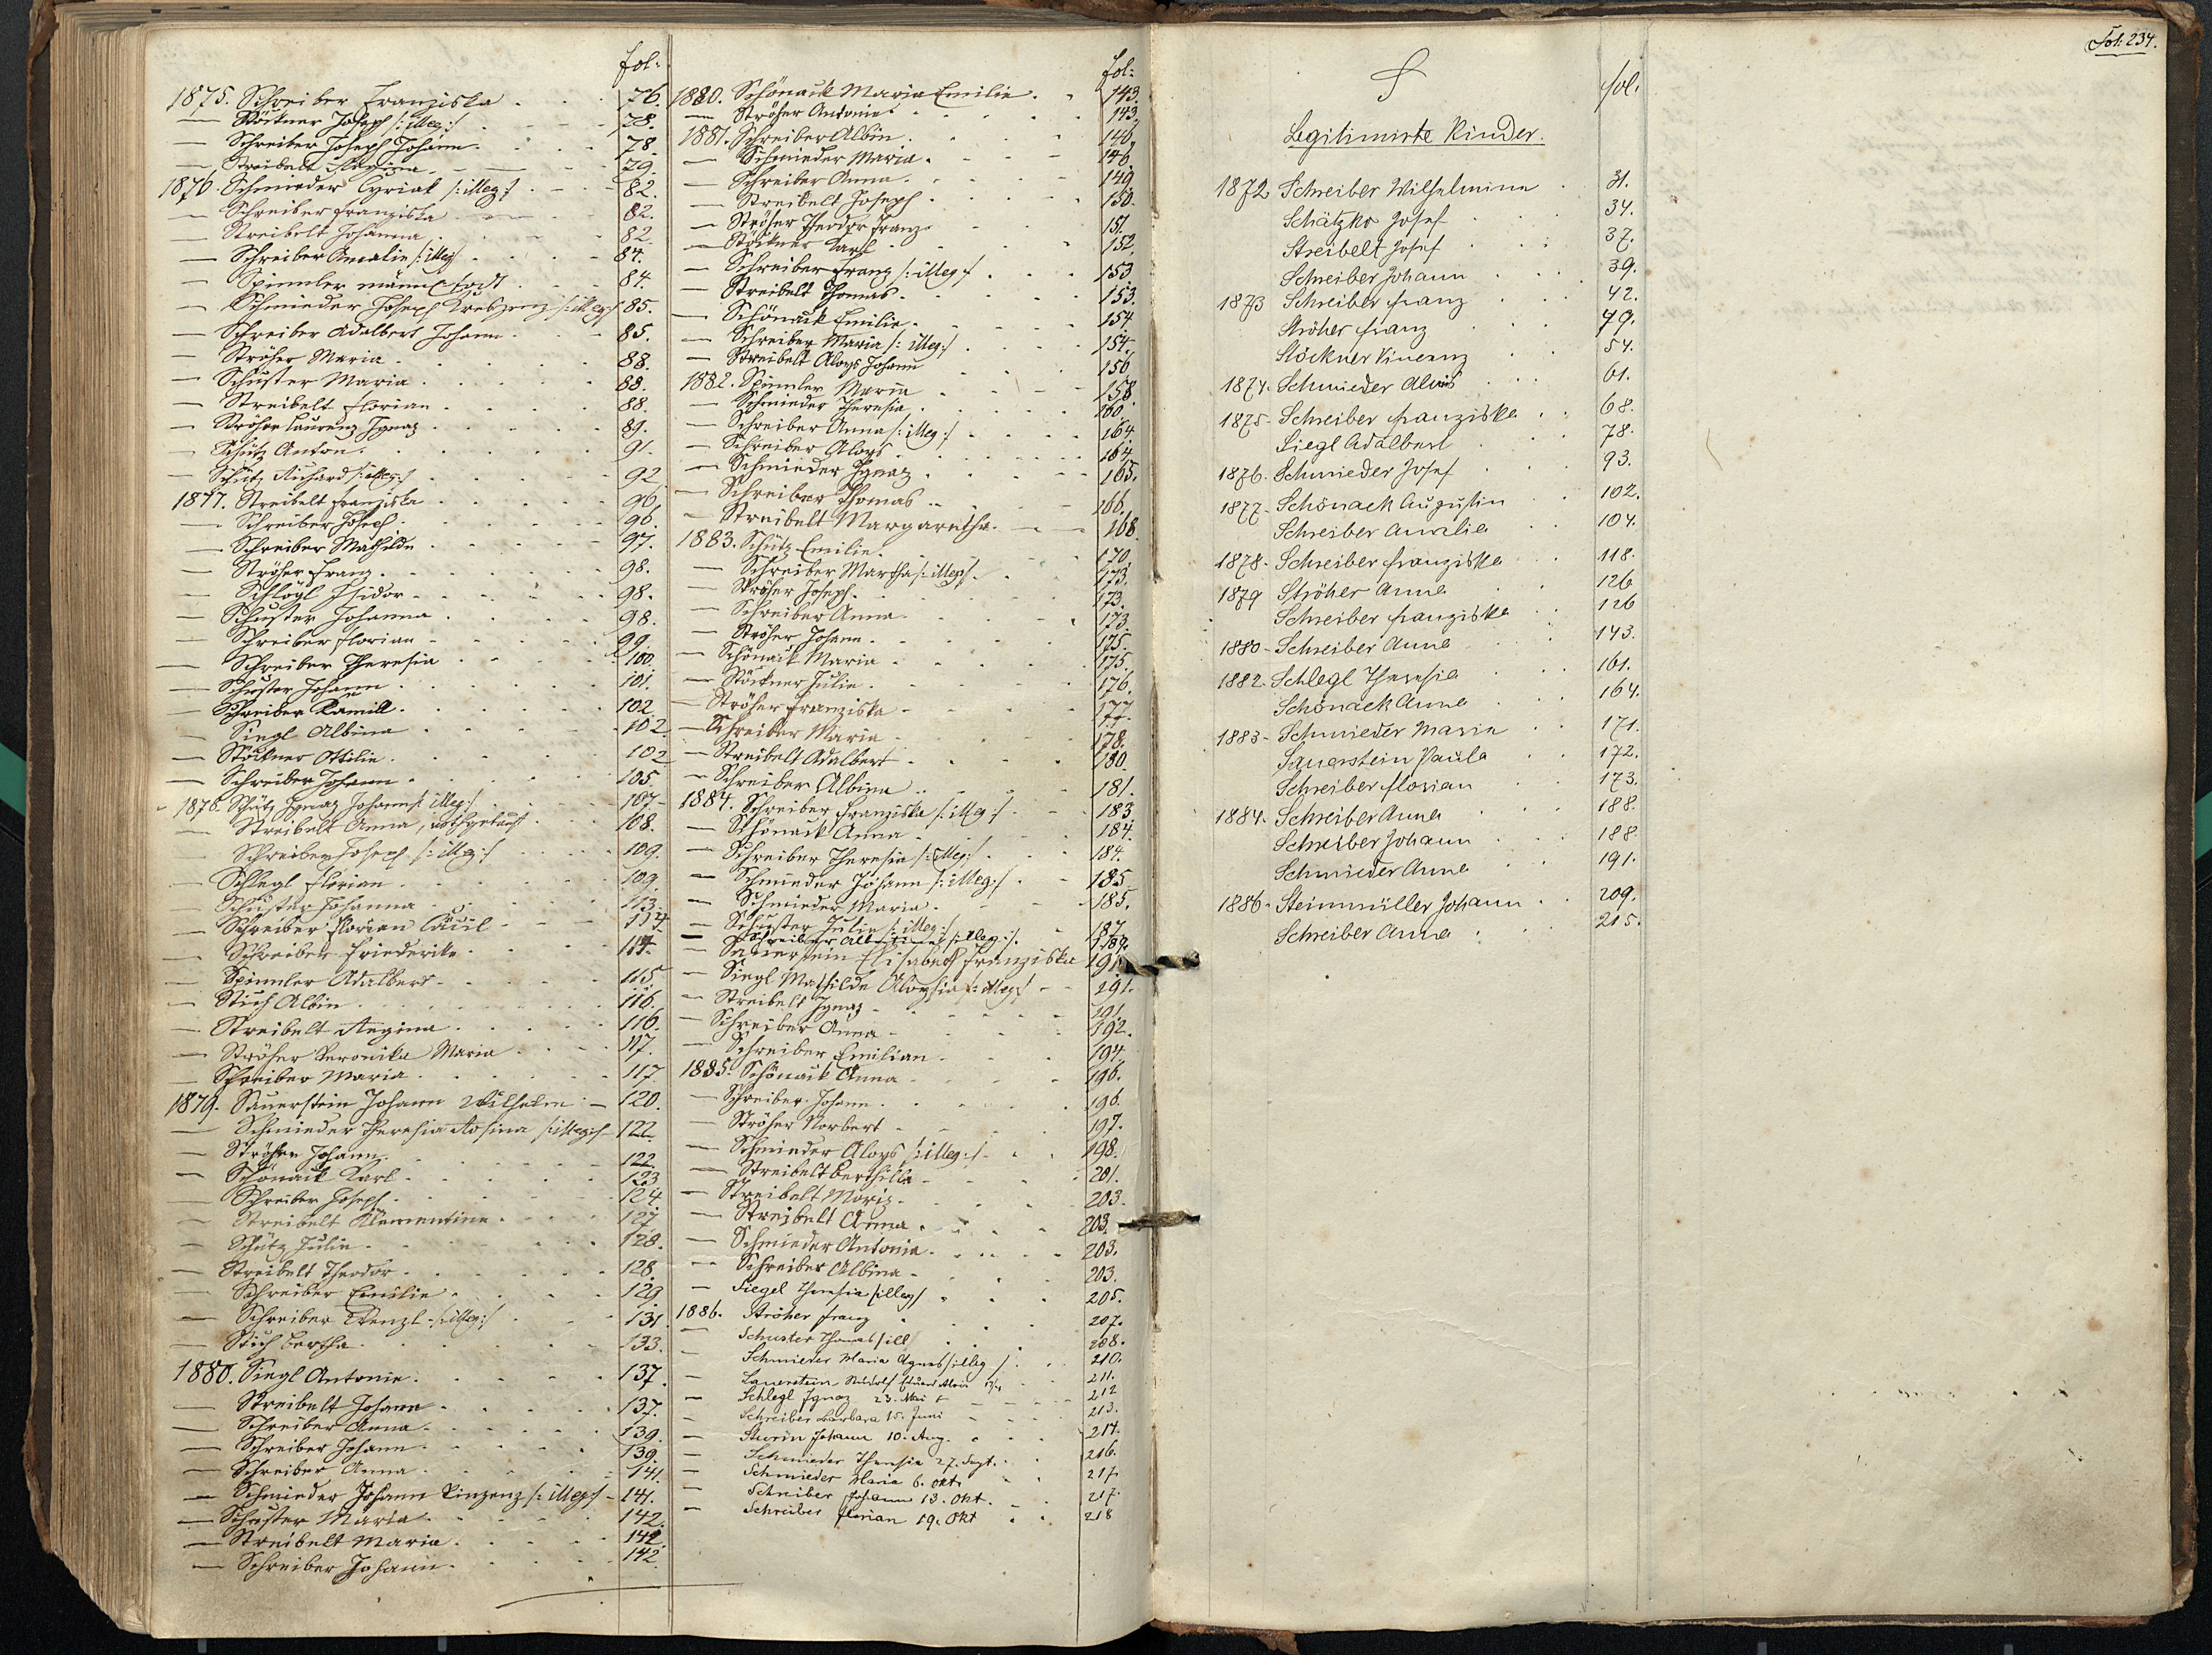 fol:
1875. Schreiber Franziska 76.
— Stöckner Joseph /:illeg:/ 78.
— Schreiber Joseph Johann 78.
— Streibelt 79.
1876. Schmieder Cyriak /:illeg:/ 82.
— Schreiber Franziska 82.
— Streibelt Johanna 82.
— Schreiber Amalie /:illeg:/ 84.
— Spinnler männl. todt 84.
— Schmieder Joseph /:illeg:/ 85.
— Schreiber Adalbert Johann 85.
— Ströher Maria 88.
— Schuster Maria 88.
— Streibelt Florian 88.
— Ströher Laurenz Ignaz 89.
— Schütz Anton 91.
— Schütz Richard /:illeg:/ 92.
1877. Streibelt Franziska 96.
— Schreiber Joseph 96.
— Schreiber Mathilde 97.
— Ströher Franz 98.
— Schlögl Isidor 98.
— Schuster Johanna 98.
— Schreiber Florian 99.
— Schreiber Theresia 100.
— Schuster Johann 101.
— Schreiber Kamill 102
— Siegl Albina 102
— Stöckner Ottilie 102
— Schreiber Johann 105.
1878. Schütz Ignaz Johann /:illeg:/ 107
— Streibelt Anna, nothgetauft 108.
— Schreiber Joseph /:illeg:/ 109.
— Schlegl Florian 109.
— Schuster Johanna 113.
— Schreiber Florian 114
— Schreiber Friederike 114.
— Spinnler Adalbert 115
— Stich Albin 116.
— Streibelt Regina 116.
— Ströher Veronika Maria 117.
— Schreiber Maria 117
1879. Sauerstein Johann Wilhelm 120.
— Schmieder Theresia Rosina /:illeg:/ 122.
— Ströher Johann 122.
— Schönack Karl 123
— Schreiber Joseph 124
— Streibelt Klementine 127
— Schütz Julie 128.
— Streibelt Theodor 128.
— Schreiber Emilie 129
— Schreiber Wenzl /:illeg:/ 131.
— Stich Bertha 133.
1880. Siegl Antonie 137.
— Streibelt Johann 137.
— Schreiber Anna 139.
— Schreiber Johann 139.
— Schreiber Anna 141.
— Schmieder Johann Vinzenz /:illeg:/ 141.
— Schuster Maria 142.
— Streibelt Maria 142.
— Schreiber Johann 142.
fol:
1880. Schönack Maria Emilie 143.
— Ströher Antonie 143.
1881. Schreiber Albin 146.
— Schmieder Maria 146.
— Schreiber Anna 149.
— Streibelt Joseph 150.
— Ströher Theodor Franz 151.
— Stöckner Karl 152.
— Schreiber Franz /:illeg:/ 153
— Streibelt Thomas 153.
— Schönack Emilie 154.
— Schreiber Maria /:illeg:/ 154.
— Streibelt Aloys Johann 156
1882. Spinnler Maria 158.
— Schmieder Theresia 160
— Schreiber Anna /:illeg:/ 164.
— Schreiber Aloys 164.
— Schmieder Ignaz 165.
— Schreiber Thomas 166.
— Streibelt Margaretha 168
1883. Schütz Emilie 170.
— Schreiber Martha /:illeg:/ 173.
— Ströher Joseph 173.
— Schreiber Anna 173.
— Ströher Johann 175.
— Schönack Maria 175.
— Stöckner Julie 176.
— Ströher Franziska 177.
— Schreiber Maria 178.
— Streibelt Adalbert 180.
— Schreiber Albina 181.
1884. Schreiber Franziska /:illeg:/ 183.
— Schönack Anna 184.
— Schreiber Theresia /:illeg:/ 184.
— Schmieder Johann /:illeg:/ 185
— Schmieder Maria 185.
— Schuster Julie /:illeg:/ 187
— Schreiber /:illeg:/ 189.
— Sauerstein Elisabeth Franziska 191
— Siegl Mathilde Aloysia /:illeg:/ 191.
— Streibelt Ignaz 191.
— Schreiber Anna 192.
— Schreiber Emilian 194.
1885. Schönack Anna 196.
— Schreiber Johann 196.
— Ströher Norbert 197.
— Schmieder Aloys /:illeg:/ 198.
— Streibelt Berthilla 201.
— Streibelt Moriz 203.
— Streibelt Anna 203.
— Schmieder Antonia 203.
— Schreiber Albina 203.
— Siegel Theresia /illeg/ 205.
1886. Ströher Franz 207.
— Schuster Thomas /ill/ 208.
— Schmieder Maria Agnes /illeg/ 210.
— Sauerstein Rudolf Eduard Alois 211.
— Schlegl Ignaz 23. Mai 212
— Schreiber Barbara 15. Juni 213.
— Sturm Johann 10. Aug. 214.
— Schmieder Theresia 27. Sept. 216.
— Schmieder Maria 6. Okt. 217.
— Schreiber Johann 13. Okt. 217.
— Schreiber Florian 19. Okt 218
Fol. 234.
S fol.
Legitimirte Kinder.
1872 Schreiber Wilhelmine 31.
Schätzko Josef 34.
Streibelt Josef 37.
Schreiber Johann 39.
1873 Schreiber Franz 42.
Ströher Franz 49.
Stöckner Vincenz 54.
1874. Schmieder Alois 61.
1875. Schreiber Franziska 68.
Siegl Adalbert 78.
1876. Schmieder Josef 93.
1877. Schönack Augustin 102.
Schreiber Amalie 104.
1878. Schreiber Franziska 118.
1879 Ströher Anna 126
Schreiber Franziska 126
1880 Schreiber Anna 143.
1882. Schlegl Theresia 161.
Schönack Anna 164.
1883 Schmieder Maria 171.
Sauerstein Paula 172.
Schreiber Florian 173.
1884. Schreiber Anna 188.
Schreiber Johann 188.
Schmieder Anna 191.
1886. Steinmüller Johann 209.
Schreiber Anna 215.